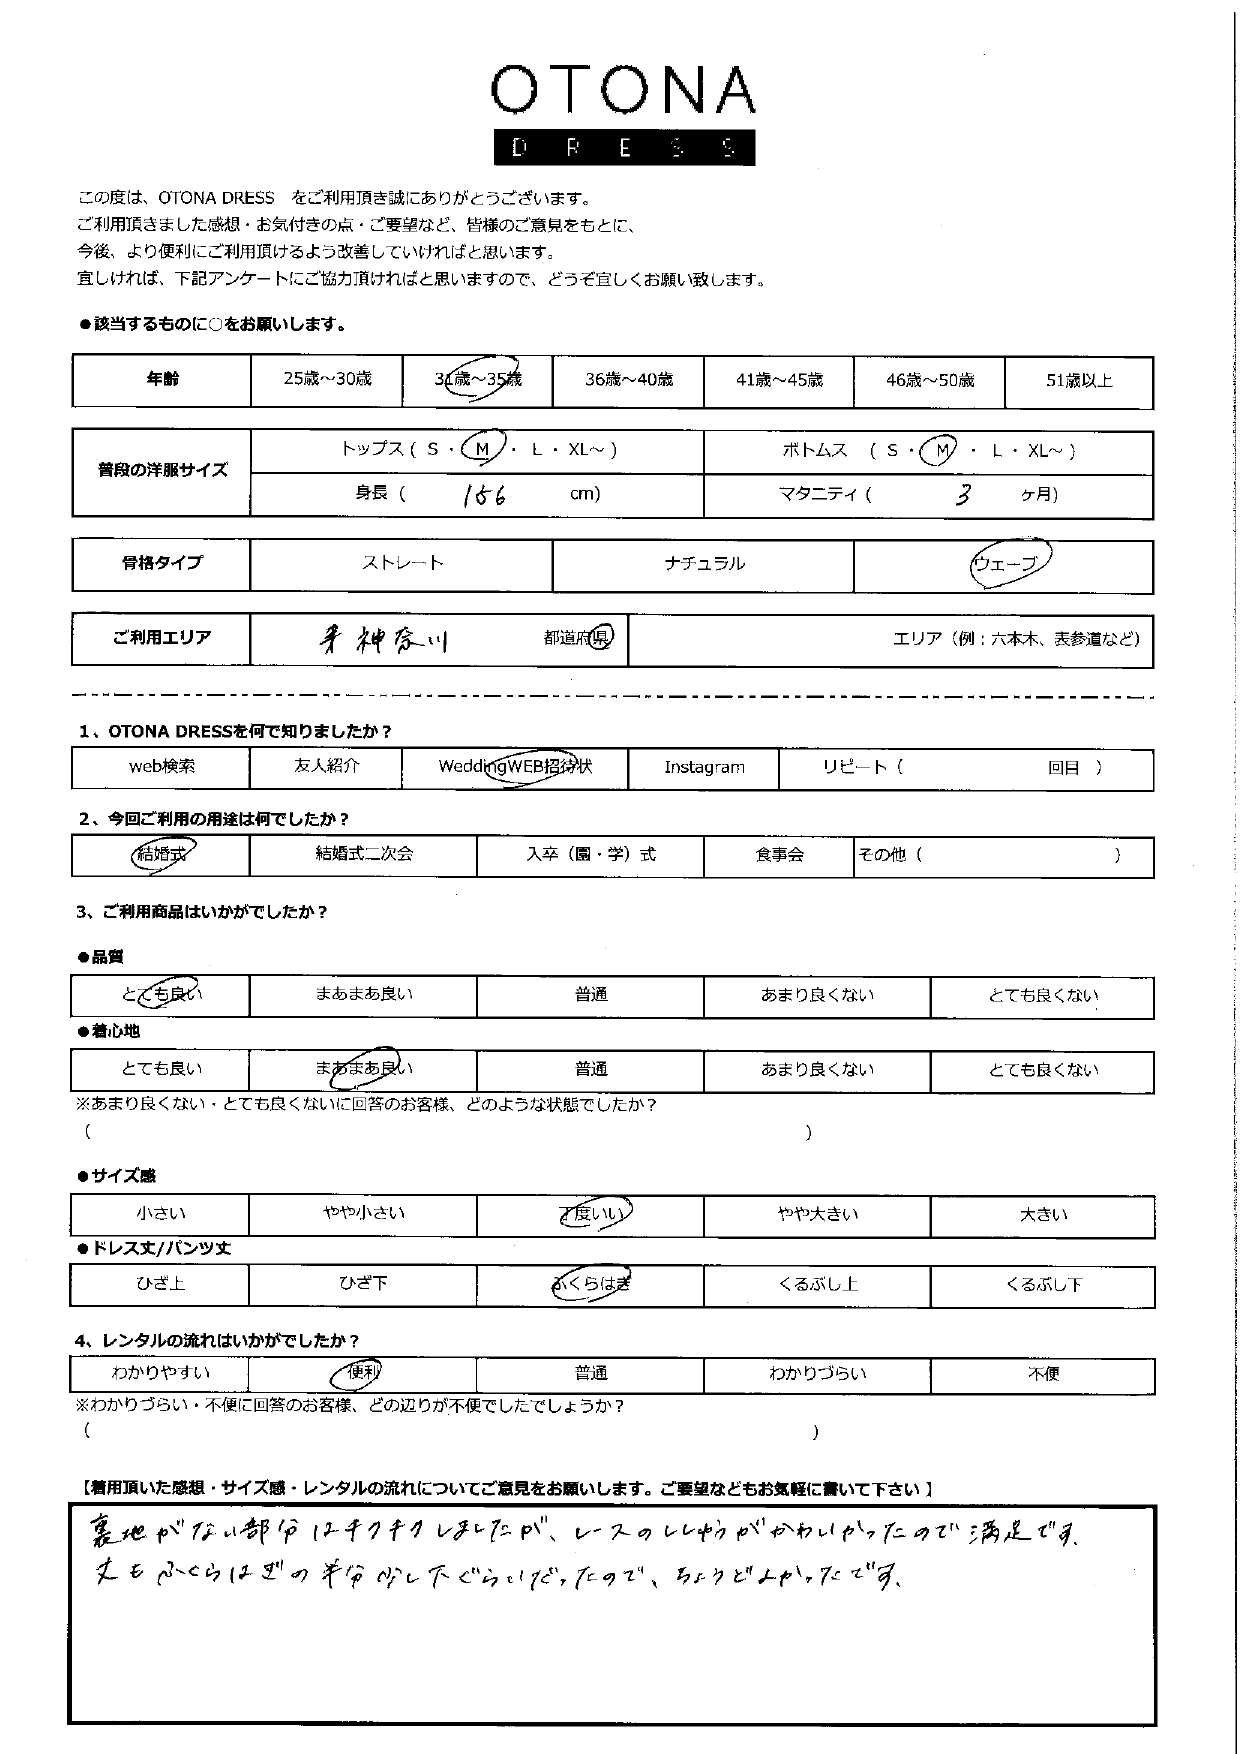 OTONA
DRESS
この度は、OTONA DRESS をご利用頂き誠にありがとうございます。
ご利用頂きました感想・お気付きの点・ご要望など、皆様のご意見をもとに、
今後、より便利にご利用頂けるよう改善していければと思います。
宜しければ、下記アンケートにご協力頂ければと思いますので、どうぞ宜しくお願い致します。
●該当するものに○をお願いします。
年齢 25歳～30歳 31歳～35歳 36歳～40歳 41歳～45歳 46歳～50歳 51歳以上
普段の洋服サイズ トップス ( S ・ M ・ L ・ XL～ ) ボトムス ( S ・ M ・ L ・ XL～ )
身長 ( 156 cm) マタニティ ( 3 ヶ月)
骨格タイプ ストレート ナチュラル ウェーブ
ご利用エリア 神奈川 都道府県 エリア（例：六本木、表参道など）
1、OTONA DRESSを何で知りましたか？
web検索 友人紹介 WeddingWEB招待状 Instagram リピート（ 回目 ）
2、今回ご利用の用途は何でしたか？
結婚式 結婚式二次会 入卒（園・学）式 食事会 その他（ ）
3、ご利用商品はいかがでしたか？
●品質
とても良い まあまあ良い 普通 あまり良くない とても良くない
●着心地
とても良い まあまあ良い 普通 あまり良くない とても良くない
※あまり良くない・とても良くないに回答のお客様、どのような状態でしたか？
（ ）
●サイズ感
小さい やや小さい 丁度いい やや大きい 大きい
●ドレス丈/パンツ丈
ひざ上 ひざ下 ふくらはぎ くるぶし上 くるぶし下
4、レンタルの流れはいかがでしたか？
わかりやすい 便利 普通 わかりづらい 不便
※わかりづらい・不便に回答のお客様、どの辺りが不便でしたでしょうか？
（ ）
【着用頂いた感想・サイズ感・レンタルの流れについてご意見をお願いします。ご要望などもお気軽に書いて下さい】
裏地がない部分はチクチクしましたが、レースのししゅうがかわいかったので満足です。
丈もふくらはぎの半分少し下ぐらいだったので、ちょうどよかったです。